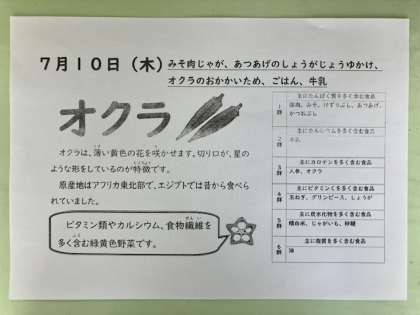 ７月１０日（木）
みそ肉じゃが、あつあげのしょうがじょうゆかけ、
オクラのおかかいため、ごはん、牛乳
オクラ
オクラは、薄い黄色の花を咲かせます。切り口が、星の
ような形をしているのが特徴です。
原産地はアフリカ東北部で、エジプトでは昔から食べら
れていました。
ビタミン類やカルシウム、食物繊維を
多く含む緑黄色野菜です。
1群
主にたんぱく質を多く含む食品
豚肉、みそ、けずりぶし、あつあげ、
かつおぶし
2群
主にカルシウムを多く含む食品
牛乳
3群
主にカロテンを多く含む食品
人参、オクラ
4群
主にビタミンCを多く含む食品
玉ねぎ、グリンピース、しょうが
5群
主に炭水化物を多く含む食品
精白米、じゃがいも、砂糖
6群
主に脂質を多く含む食品
油